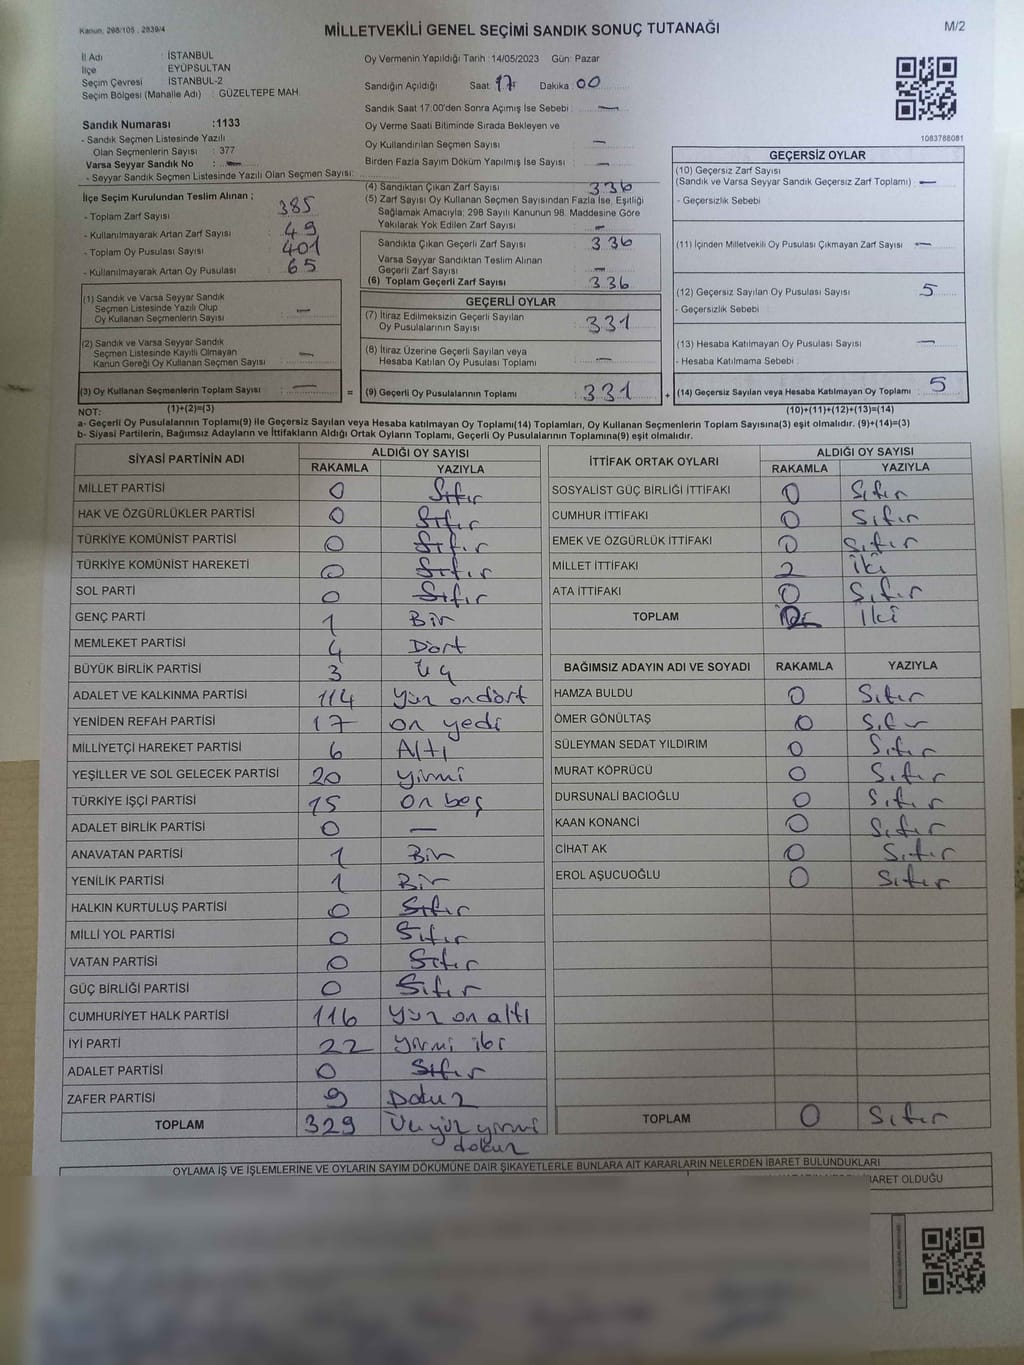 Kanun. 298/105 , 2839/4
MİLLETVEKİLİ GENEL SEÇİMİ SANDIK SONUÇ TUTANAĞI
M/2
İl Adı : İSTANBUL
İlçe : EYÜPSULTAN
Seçim Çevresi : İSTANBUL-2
Seçim Bölgesi (Mahalle Adı) : GÜZELTEPE MAH.
Oy Vermenin Yapıldığı Tarih :14/05/2023 Gün: Pazar
Sandığın Açıldığı Saat: 17 Dakika: 00
Sandık Saat 17:00'den Sonra Açımış İse Sebebi : —
Oy Verme Saati Bitiminde Sırada Bekleyen ve
Oy Kullandırılan Seçmen Sayısı : —
Birden Fazla Sayım Döküm Yapılmış İse Sayısı : —
1083788081
Sandık Numarası :1133
- Sandık Seçmen Listesinde Yazılı
Olan Seçmenlerin Sayısı : 377
Varsa Seyyar Sandık No : —
- Seyyar Sandık Seçmen Listesinde Yazılı Olan Seçmen Sayısı:
İlçe Seçim Kurulundan Teslim Alınan ;
- Toplam Zarf Sayısı : 385
- Kullanılmayarak Artan Zarf Sayısı : 49
- Toplam Oy Pusulası Sayısı : 401
- Kullanılmayarak Artan Oy Pusulası : 65
(1) Sandık ve Varsa Seyyar Sandık
Seçmen Listesinde Yazılı Olup
Oy Kullanan Seçmenlerin Sayısı : —
(2) Sandık ve Varsa Seyyar Sandık
Seçmen Listesinde Kayıtlı Olmayan
Kanun Gereği Oy Kullanan Seçmen Sayısı : —
(3) Oy Kullanan Seçmenlerin Toplam Sayısı : —
(1)+(2)=(3)
(4) Sandıktan Çıkan Zarf Sayısı : 336
(5) Zarf Sayısı Oy Kullanan Seçmen Sayısından Fazla İse, Eşitliği
Sağlamak Amacıyla; 298 Sayılı Kanunun 98. Maddesine Göre
Yakılarak Yok Edilen Zarf Sayısı : —
Sandıkta Çıkan Geçerli Zarf Sayısı : 336
Varsa Seyyar Sandıktan Teslim Alınan
Geçerli Zarf Sayısı : —
(6) Toplam Geçerli Zarf Sayısı : 336
GEÇERLİ OYLAR
(7) İtiraz Edilmeksizin Geçerli Sayılan
Oy Pusulalarının Sayısı : 331
(8) İtiraz Üzerine Geçerli Sayılan veya
Hesaba Katılan Oy Pusulası Toplamı : —
= (9) Geçerli Oy Pusulalarının Toplamı : 331
GEÇERSİZ OYLAR
(10) Geçersiz Zarf Sayısı
(Sandık ve Varsa Seyyar Sandık Geçersiz Zarf Toplamı) : —
- Geçersizlik Sebebi :
(11) İçinden Milletvekili Oy Pusulası Çıkmayan Zarf Sayısı : —
(12) Geçersiz Sayılan Oy Pusulası Sayısı : 5
- Geçersizlik Sebebi :
(13) Hesaba Katılmayan Oy Pusulası Sayısı : —
- Hesaba Katılmama Sebebi :
+ (14) Geçersiz Sayılan veya Hesaba Katılmayan Oy Toplamı : 5
(10)+(11)+(12)+(13)=(14)
NOT:
a- Geçerli Oy Pusulalarının Toplamı(9) ile Geçersiz Sayılan veya Hesaba Katılmayan Oy Toplamı(14) Toplamları, Oy Kullanan Seçmenlerin Toplam Sayısına(3) eşit olmalıdır. (9)+(14)=(3)
b- Siyasi Partilerin, Bağımsız Adayların ve İttifakların Aldığı Ortak Oyların Toplamı, Geçerli Oy Pusulalarının Toplamına(9) eşit olmalıdır.
SİYASİ PARTİNİN ADI ALDIĞI OY SAYISI
RAKAMLA YAZIYLA
MİLLET PARTİSİ 0 Sıfır
HAK VE ÖZGÜRLÜKLER PARTİSİ 0 Sıfır
TÜRKİYE KOMÜNİST PARTİSİ 0 Sıfır
TÜRKİYE KOMÜNİST HAREKETİ 0 Sıfır
SOL PARTİ 0 Sıfır
GENÇ PARTİ 1 Bir
MEMLEKET PARTİSİ 4 Dört
BÜYÜK BİRLİK PARTİSİ 3 Üç
ADALET VE KALKINMA PARTİSİ 114 Yüz ondört
YENİDEN REFAH PARTİSİ 17 on yedi
MİLLİYETÇİ HAREKET PARTİSİ 6 Altı
YEŞİLLER VE SOL GELECEK PARTİSİ 20 yirmi
TÜRKİYE İŞÇİ PARTİSİ 15 on beş
ADALET BİRLİK PARTİSİ 0 —
ANAVATAN PARTİSİ 1 Bir
YENİLİK PARTİSİ 1 Bir
HALKIN KURTULUŞ PARTİSİ 0 Sıfır
MİLLİ YOL PARTİSİ 0 Sıfır
VATAN PARTİSİ 0 Sıfır
GÜÇ BİRLİĞİ PARTİSİ 0 Sıfır
CUMHURİYET HALK PARTİSİ 116 Yüz on altı
İYİ PARTİ 22 yirmi iki
ADALET PARTİSİ 0 Sıfır
ZAFER PARTİSİ 9 Dokuz
TOPLAM 329 Üçyüz yirmi
dokuz
İTTİFAK ORTAK OYLARI ALDIĞI OY SAYISI
RAKAMLA YAZIYLA
SOSYALİST GÜÇ BİRLİĞİ İTTİFAKI 0 Sıfır
CUMHUR İTTİFAKI 0 Sıfır
EMEK VE ÖZGÜRLÜK İTTİFAKI 0 Sıfır
MİLLET İTTİFAKI 2 İki
ATA İTTİFAKI 0 Sıfır
TOPLAM İki
BAĞIMSIZ ADAYIN ADI VE SOYADI RAKAMLA YAZIYLA
HAMZA BULDU 0 Sıfır
ÖMER GÖNÜLTAŞ 0 Sıfır
SÜLEYMAN SEDAT YILDIRIM 0 Sıfır
MURAT KÖPRÜCÜ 0 Sıfır
DURSUNALİ BACIOĞLU 0 Sıfır
KAAN KONANCİ 0 Sıfır
CİHAT AK 0 Sıfır
EROL AŞUCUOĞLU 0 Sıfır
TOPLAM 0 Sıfır
OYLAMA İŞ VE İŞLEMLERİNE VE OYLARIN SAYIM DÖKÜMÜNE DAİR ŞİKAYETLERLE BUNLARA AİT KARARLARIN NELERDEN İBARET BULUNDUKLARI
İBARET OLDUĞU